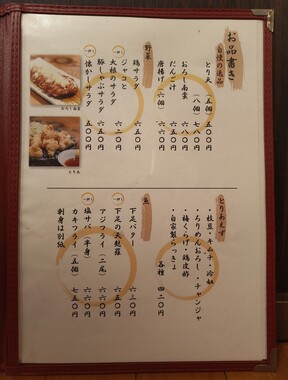 お品書き
自慢の逸品
とり天（五個）五〇〇
（八個）七八〇
おろし南蛮 七八〇
だんご汁 六五〇
唐揚げ（六個）六〇〇
野菜
鶏サラダ 五〇〇
ジャコと
大根のサラダ 六二〇
豚しゃぶサラダ 六五〇
懐かしサラダ 五〇〇
おろし南蛮
とり天
とりあえず
・枝豆・キムチ・冷奴
・ちりめんおろし・チャンジャ
・梅くらげ・鶏皮酢
・自家製らっきょ
各種 四二〇
魚
下足バター 六三〇
下足の天麩羅 六五〇
アジフライ（二尾）六六〇
塩サバ（半身）六六〇
カキフライ（五個）七五〇
刺身は別紙